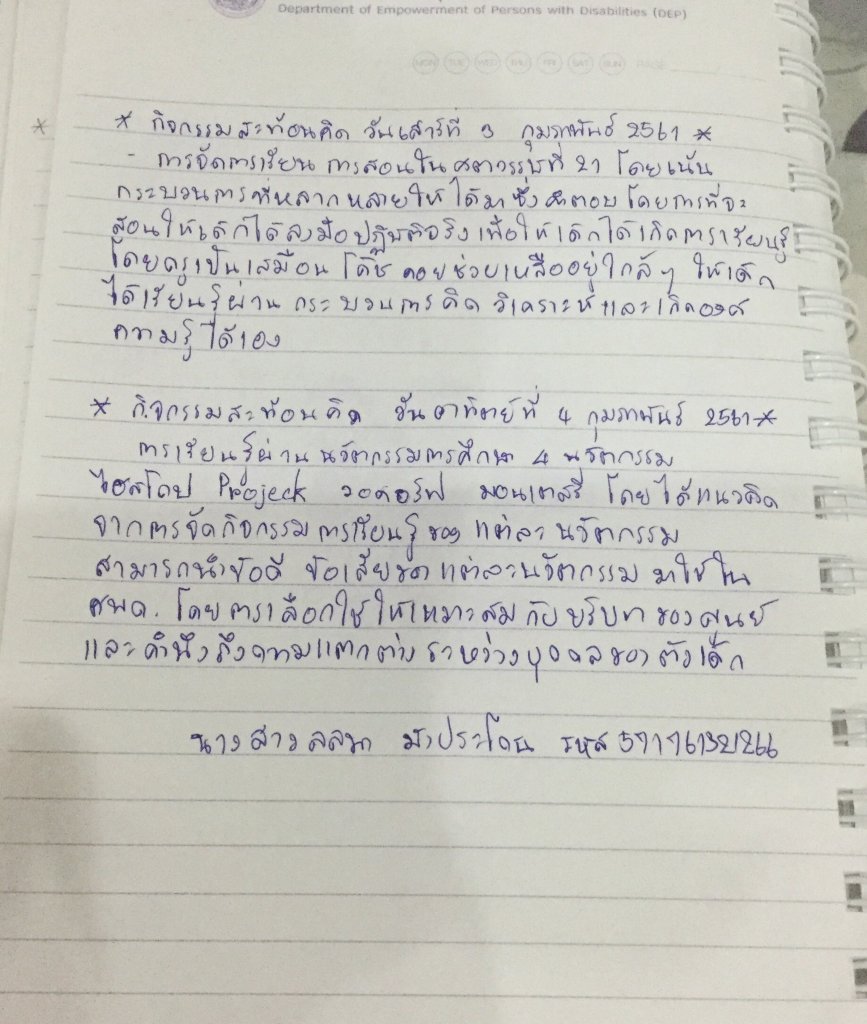 Department of Empowerment of Persons with Disabilities (DEP)
MON TUE WED THU FRI SAT SUN
* กิจกรรมสะท้อนคิด วันเสาร์ที่ 3 กุมภาพันธ์ 2561 *
- การจัดการเรียน การสอนใน ศตวรรษที่ 21 โดยเน้น
กระบวนการที่หลากหลายให้ได้มาซึ่ง คำตอบ โดยการที่จะ
สอนให้เด็กได้ลงมือปฏิบัติจริง เพื่อให้เด็กได้เกิดการเรียนรู้
โดยครูเป็นเสมือน โค๊ช คอยช่วยเหลืออยู่ใกล้ๆ ให้เด็ก
ได้เรียนรู้ผ่าน กระบวนการคิด วิเคราะห์ และเกิดองค์
ความรู้ได้เอง
* กิจกรรมสะท้อนคิด วันอาทิตย์ที่ 4 กุมภาพันธ์ 2561*
การเรียนรู้ผ่าน นวัตกรรมการศึกษา 4 นวัตกรรม
ไฮสโคป Projeck วอดอร์ฟ มอนเตสรี่ โดยได้แนวคิด
จากการจัดกิจกรรมการเรียนรู้ของ แต่ละ นวัตกรรม
สามารถนำข้อดี ข้อเสียของ แต่ละนวัตกรรม มาใช้ใน
ศพด. โดยการเลือกใช้ให้เหมาะสม กับบริบท ของศูนย์
และคำนึงถึงความแตกต่าง ระหว่างบุคคลของ ตัวเด็ก
นางสาว ประโคน รหัส